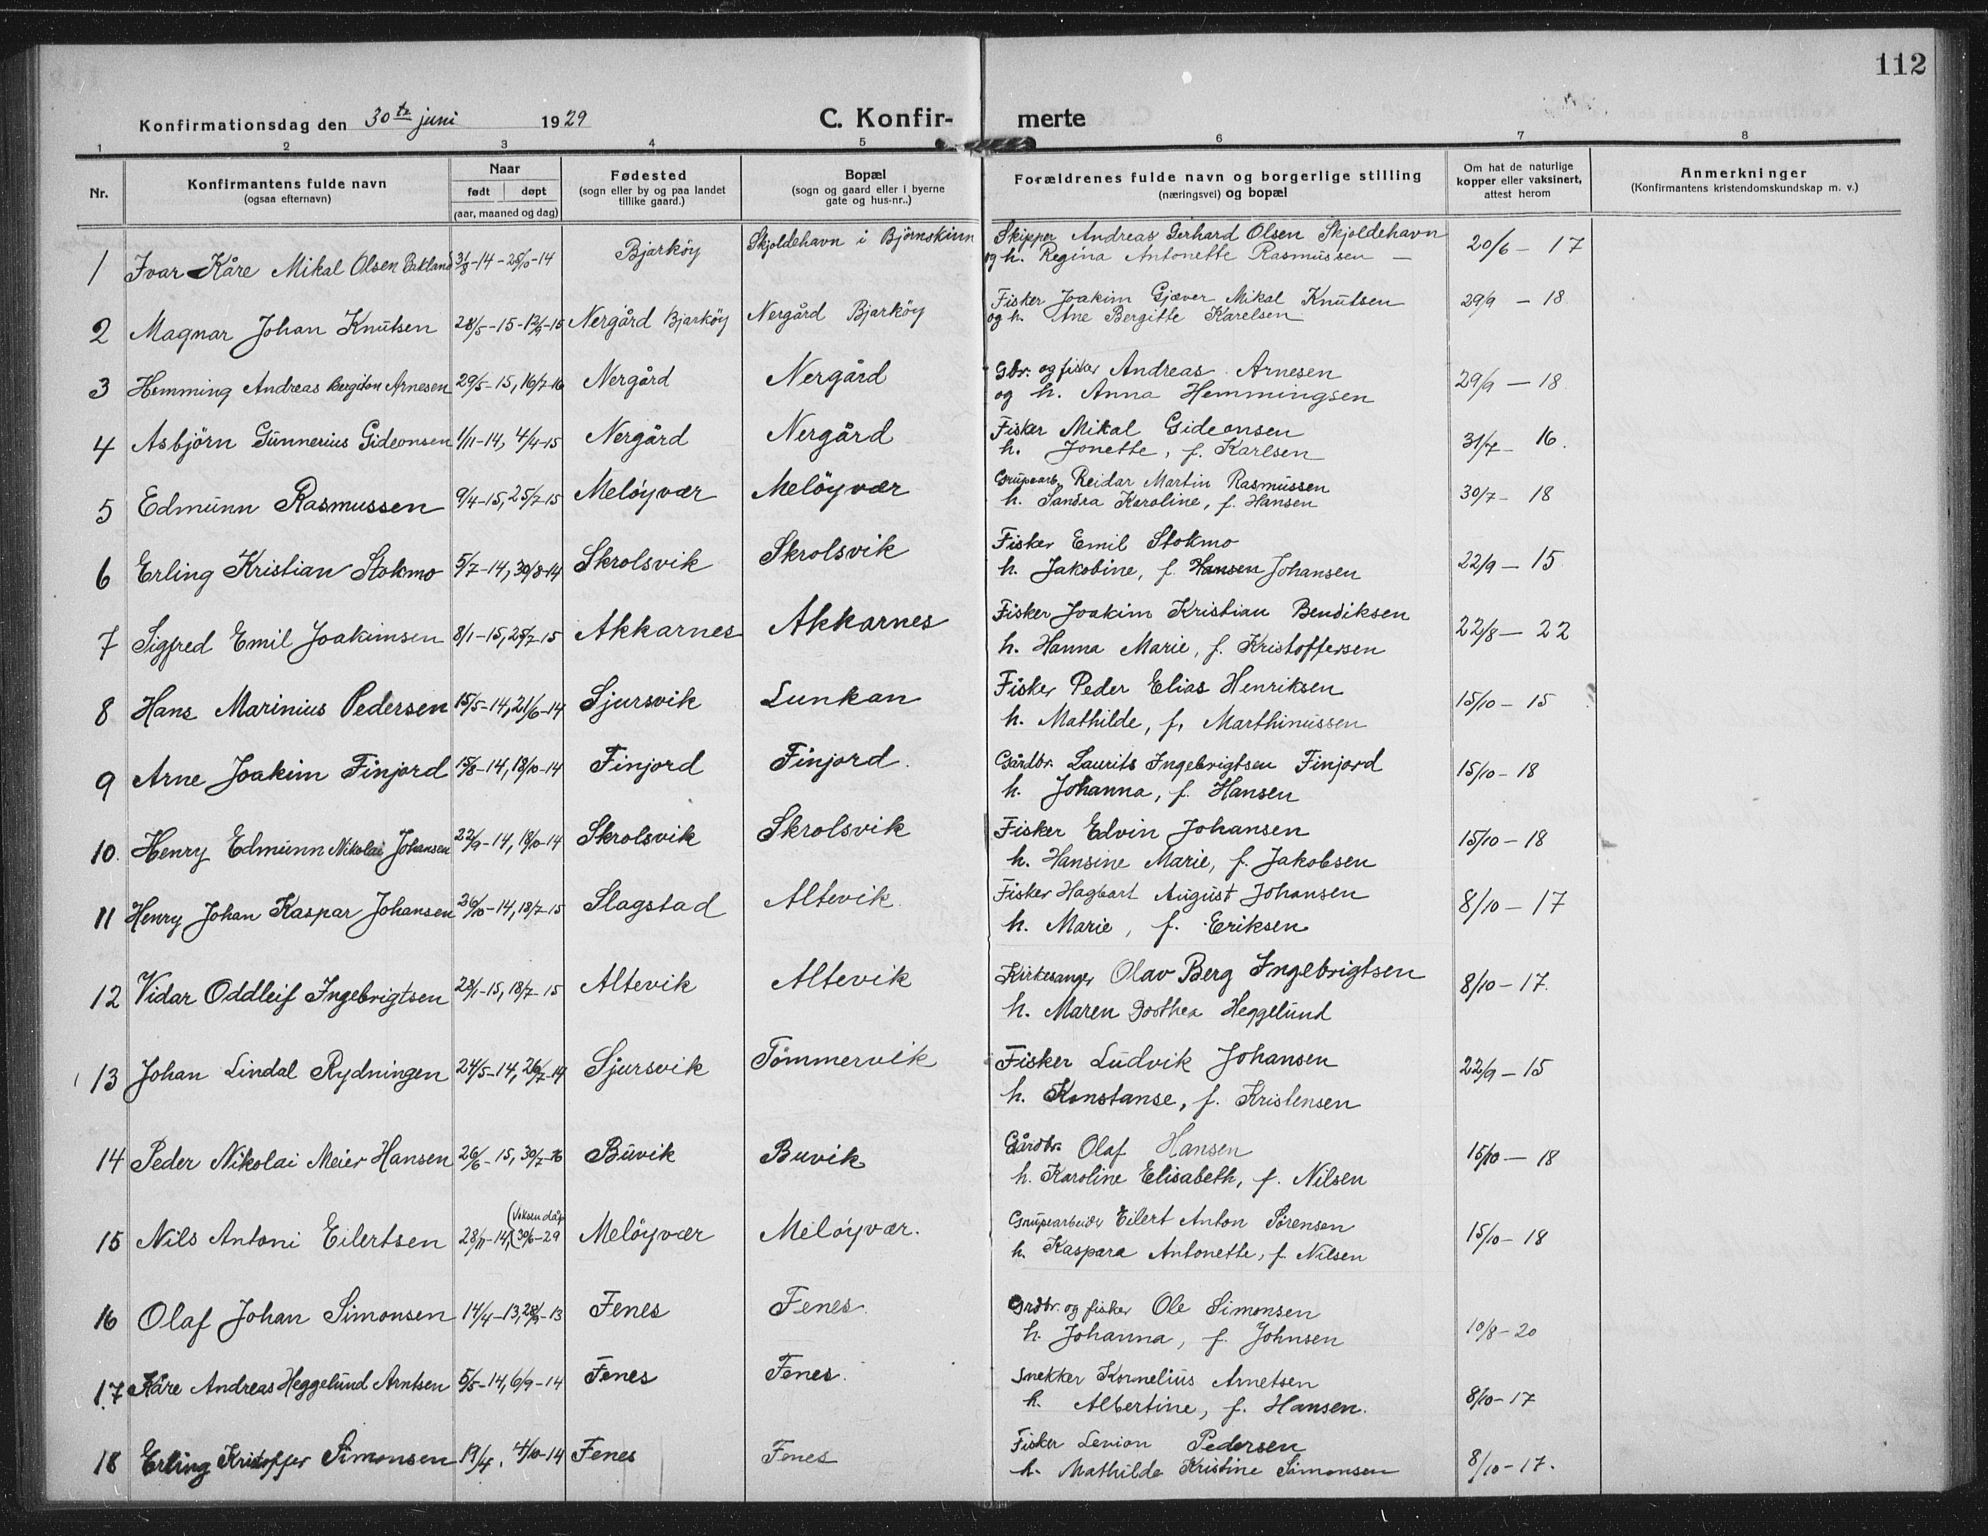 112
Konfirmationsdag den 30te juni 1929 C. Konfir- merte
1 2 3 4 5 6 7 8
Nr. Konfirmantens fulde navn (ogsaa efternavn) Naar født døpt (aar, maaned og dag) Fødested (sogn eller by og paa landet tillike gaard.) Bopæl (sogn og gaard eller i byerne gate og hus-nr..) Forældrenes fulde navn og borgerlige stilling (næringsvei) og bopæl Om hat de naturlige kopper eller vaksinert, attest herom Anmerkninger (Konfirmantens kristendomskundskap m. v.)
1 Ivar Kåre Mikal Olsen Bakland 31/8-14 - 25/10-14 Bjarköy Skjoldehavn i Björnskinn Skipper Andreas Gerhard Olsen Skjoldehavn 20/6 - 17
og h. Regina Antonette Rasmussen —
2 Magnar Johan Knutsen 28/5-15-12/9-15 Nergård Bjarköy Nergård Bjarköy Fisker Joakim Gjæver Mikal Knutsen 29/9 - 18
og h. Ane Bergitte Karelsen
3 Hemming Andreas Bergiton Arnesen 29/5-15, 16/7-16 Nergård Nergård Gbr. og fisker Andreas Arnesen 29/9 - 18.
og h. Anna Hemmingsen
4 Asbjörn Gunnerius Gideonsen 1/11-14, 4/4-15 Nergård Nergård Fisker Mikal Gideonsen 31/7- 16.
h. Jonette, f. Karlsen
5 Edmunn Rasmussen 9/4-15, 25/7-15 Melöyvær Melöyvær Grupearb. Reidar Martin Rasmussen 30/7- 18
h. Sandra Karoline, f. Hansen
6 Erling Kristian Stokmo 5/7-14, 30/8-14 Skrolsvik Skrolsvik Fisker Emil Stokmo 22/9 - 15
h. Jakobine, f. Hansen Johansen
7 Sigfred Emil Joakimsen 8/1-15, 25/7-15 Akkarnes Akkarnes Fisker Joakim Kristian Bendiksen 22/8 - 22
h. Hanna Marie, f. Kristoffersen
8 Hans Marinius Pedersen 15/5-14, 21/6-14 Sjursvik Lunkan Fisker Peder Elias Henriksen 15/10 - 15
h. Mathilde, f. Marthinussen
9 Arne Joakim Finjord 15/8-14, 18/10-14 Finjord Finjord. Gårdbr. Laurits Ingebrigtsen Finjord 15/10 - 18
h. Johanna, f. Hansen
10. Henry Edmunn Nikolai Johansen 22/9-14, 18/10-14 Skrolsvik Skrolsvik Fisker Edvin Johansen 15/10 - 18
h. Hansine Marie, f. Jakobsen
11 Henry Johan Kaspar Johansen 26/10-14, 18/7-15 Slagstad Altevik. Fisker Hagbart August Johansen 8/10 - 17
h. Marie, f. Eriksen
12 Vidar Oddleif Ingebrigtsen 28/1-15, 18/7-15 Altevik Altevik Kirkesanger Olav Berg Ingebrigtsen 8/10 - 17.
h. Maren Dorthea Heggelund
13 Johan Lindal Rydningen 24/5-14, 26/7-14 Sjursvik Tömmervik Fisker Ludvik Johansen 22/9 - 15
h. Konstanse, f. Kristensen
14 Peder Nikolai Meier Hansen 26/6-15, 30/7-16 Buvik Buvik Gårdbr. Olaf Hansen 15/10 - 18
h. Karoline Elisabeth, f. Nilsen
15 Nils Antoni Eilertsen 28/11-14, (Voksendåp 30/6-29 Melöyvær Melöyvær. Grupearbeider Eilert Anton Sörensen 15/10 - 18
h. Kaspara Antonette, f. Nilsen
16 Olaf Johan Simonsen 14/4-13, 28/9-13 Fenes Fenes. Grdbr. og fisker Ole Simonsen 10/8 - 20
h. Johanna, f. Johnsen
17 Kåre Andreas Heggelund Arntsen 5/5-14, 6/9-14 Fenes Fenes. Snekker Kornelius Arnetsen 8/10 - 17
h. Albertine, f. Hansen.
18 Erling Kristoffer Simonsen 19/4, 4/10-14 Fenes Fenes Fisker Levion Pedersen 8/10 - 17.
h. Mathilde Kristine Simonsen